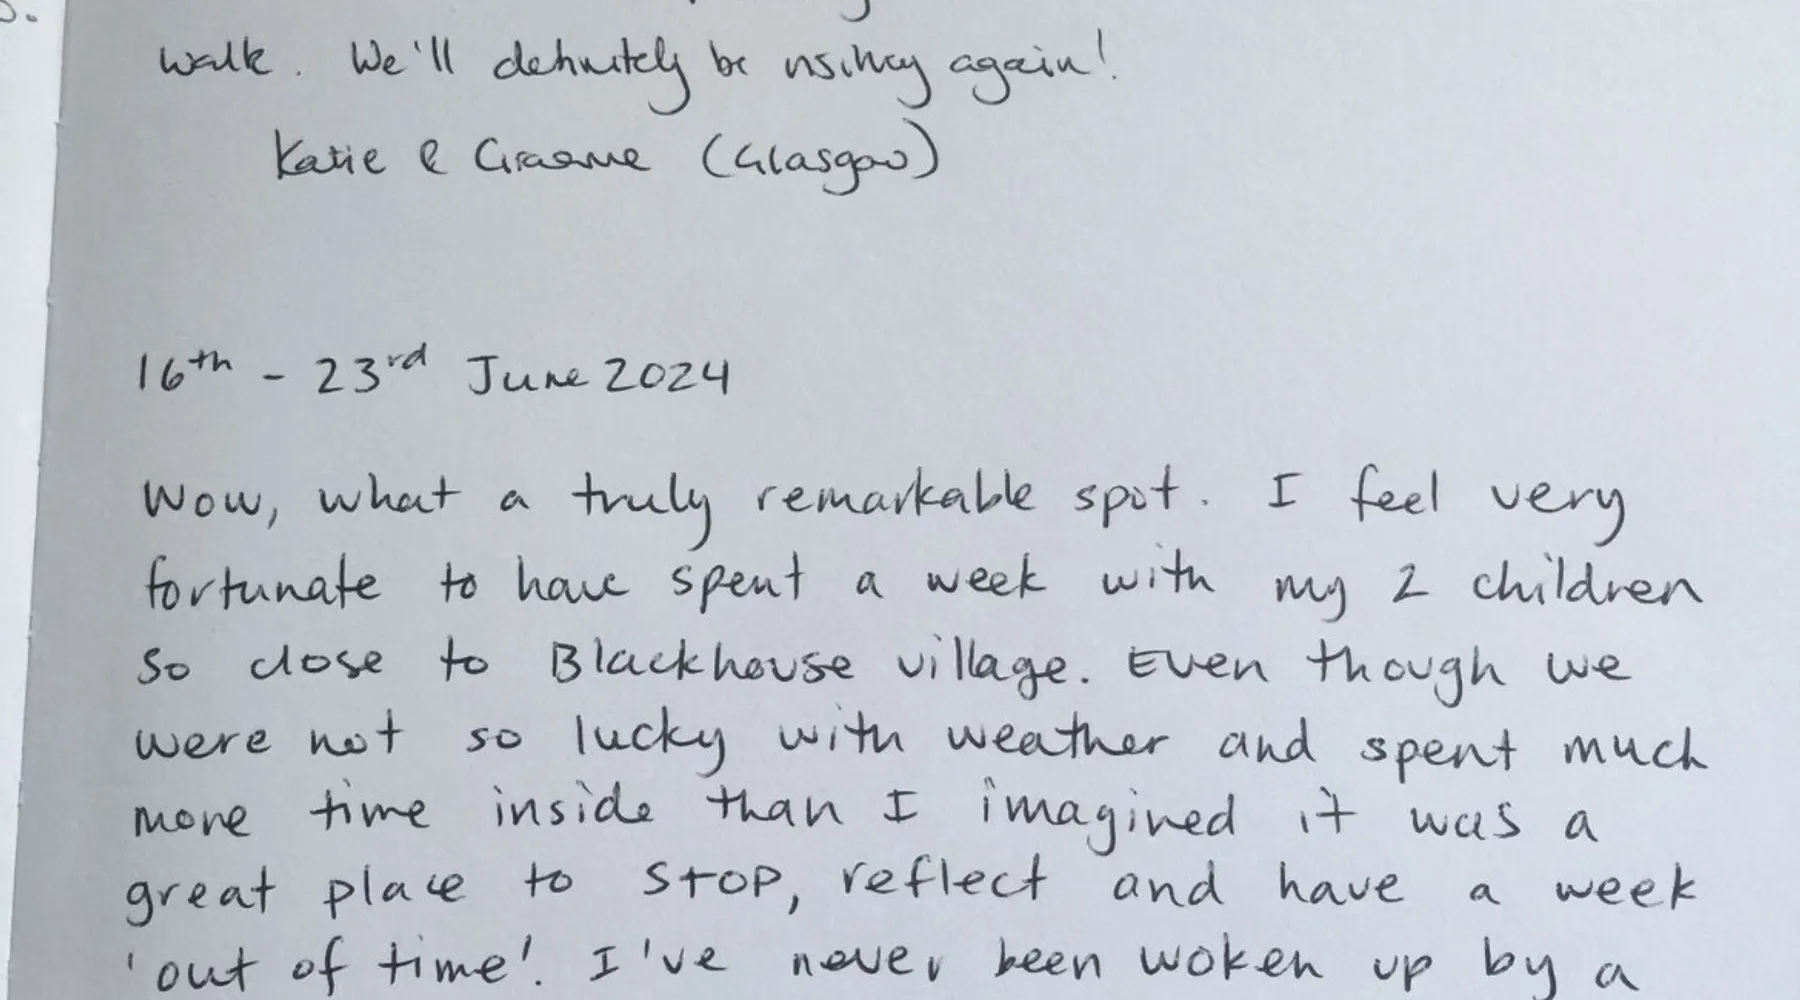 walk. We'll definitely be using again!
Katie & Graeme (Glasgow)
16th - 23rd June 2024
Wow, what a truly remarkable spot. I feel very
fortunate to have spent a week with my 2 children
so close to Blackhouse village. Even though we
were not so lucky with weather and spent much
more time inside than I imagined it was a
great place to STOP, reflect and have a week
'out of time'. I've never been woken up by a